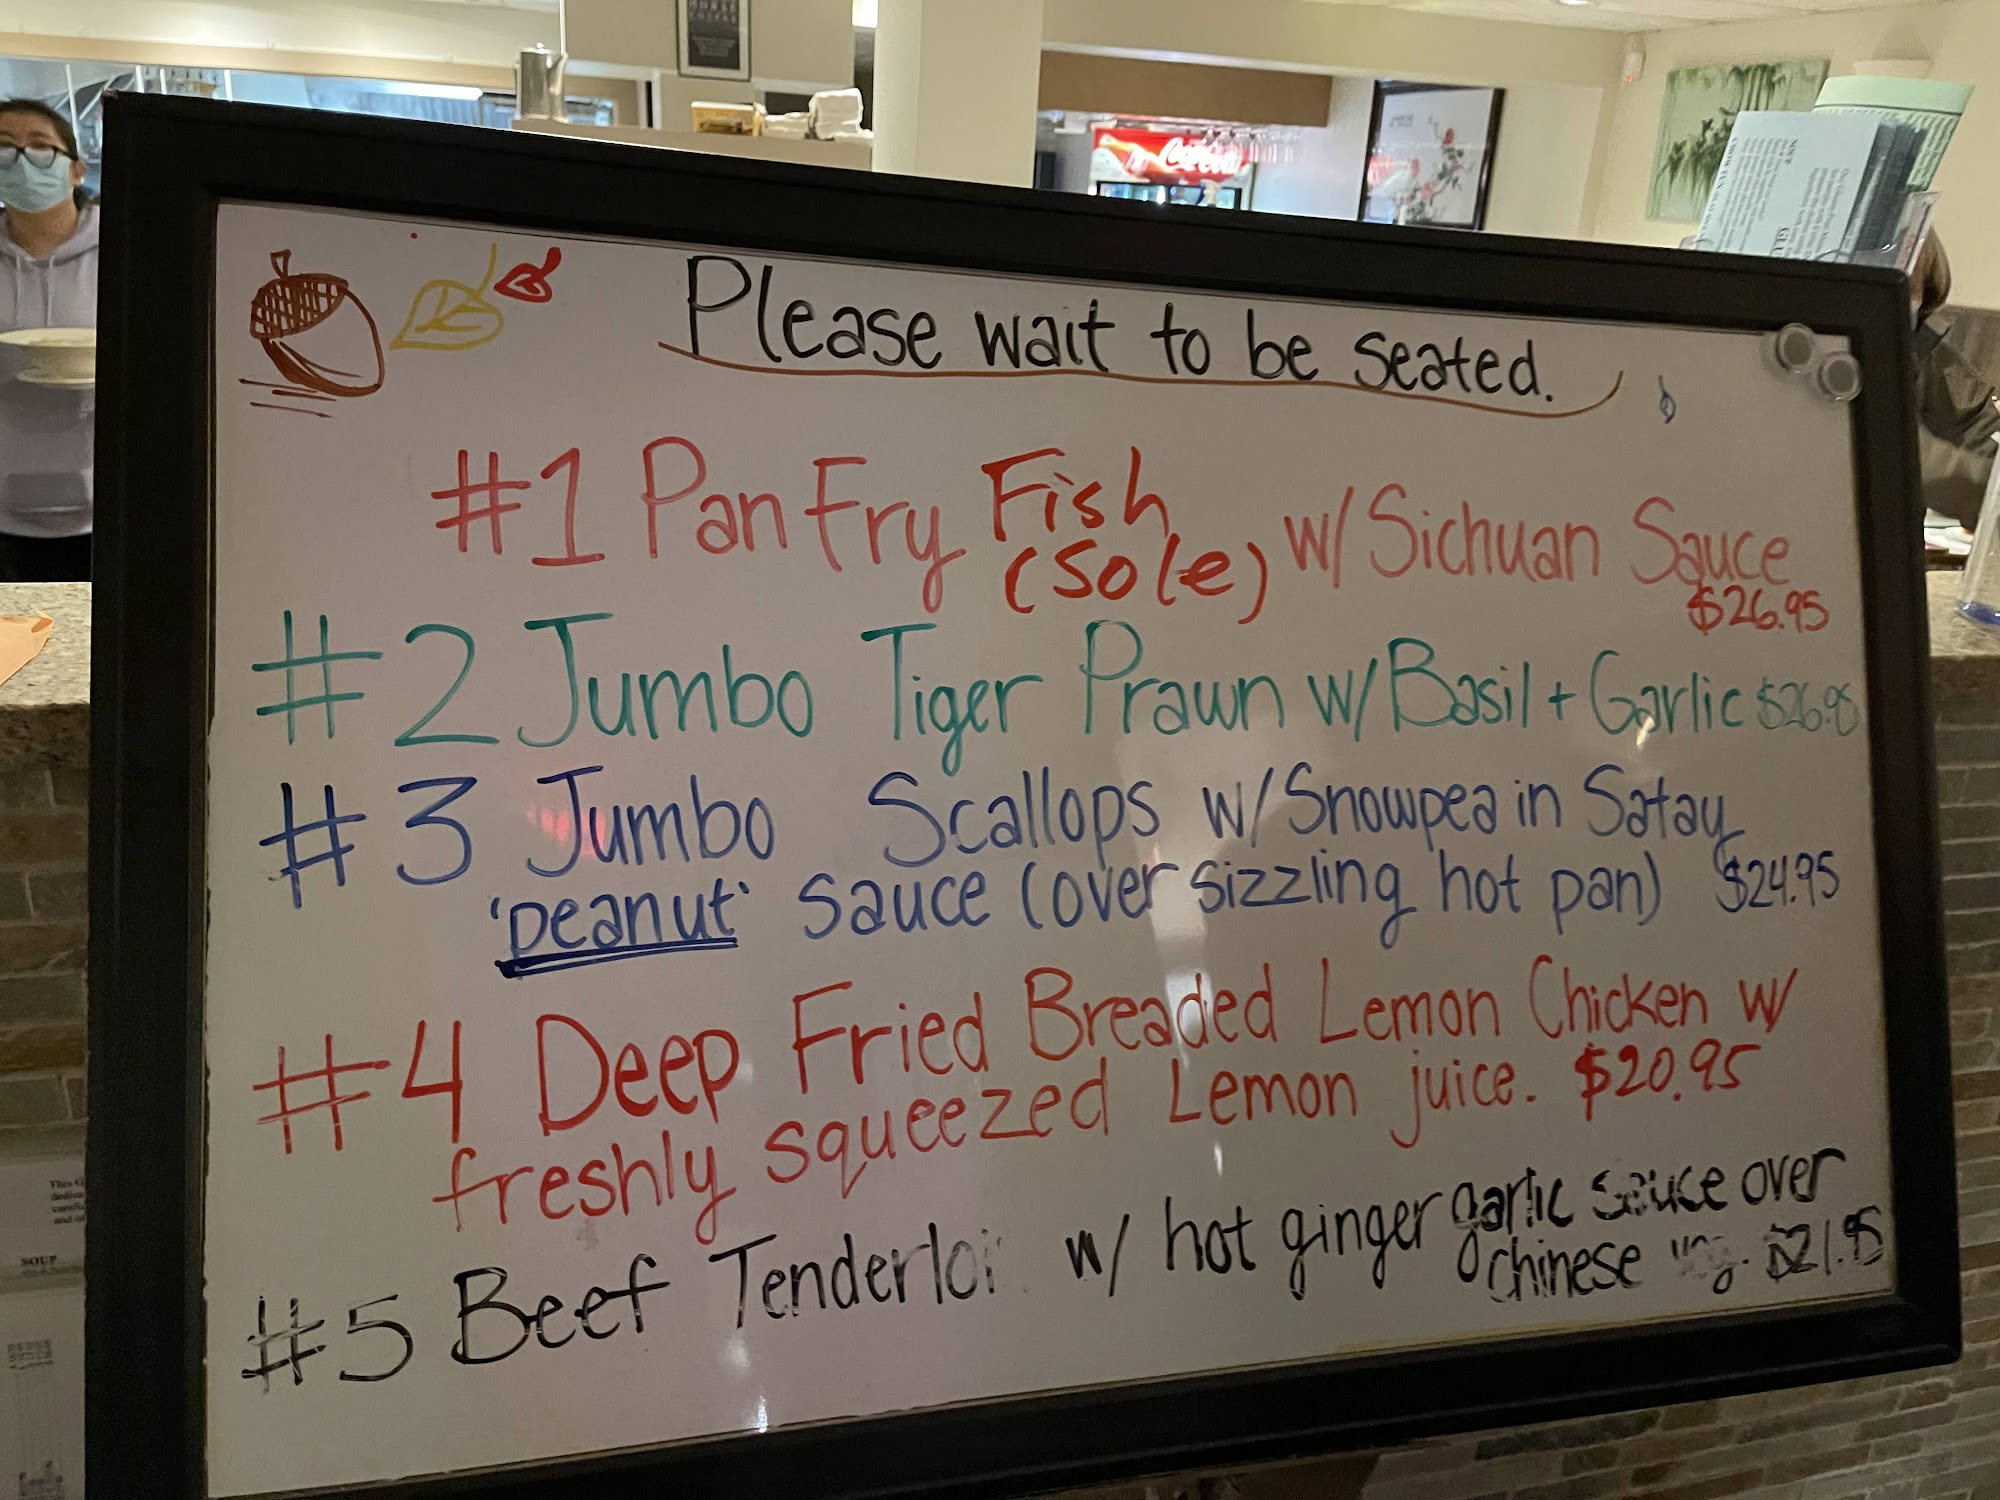 Please wait to be seated.
#1 Pan Fry Fish w/ Sichuan Sauce
(Sole)
$26.95
#2 Jumbo Tiger Prawn w/ Basil + Garlic $26.95
#3 Jumbo Scallops w/ Snowpea in Satay
'peanut' sauce (over sizzling hot pan) $24.95
#4 Deep Fried Breaded Lemon Chicken w/
freshly squeezed Lemon juice. $20.95
#5 Beef w/ hot ginger garlic sauce over
chinese $21.95
Coca-Cola
SOUP